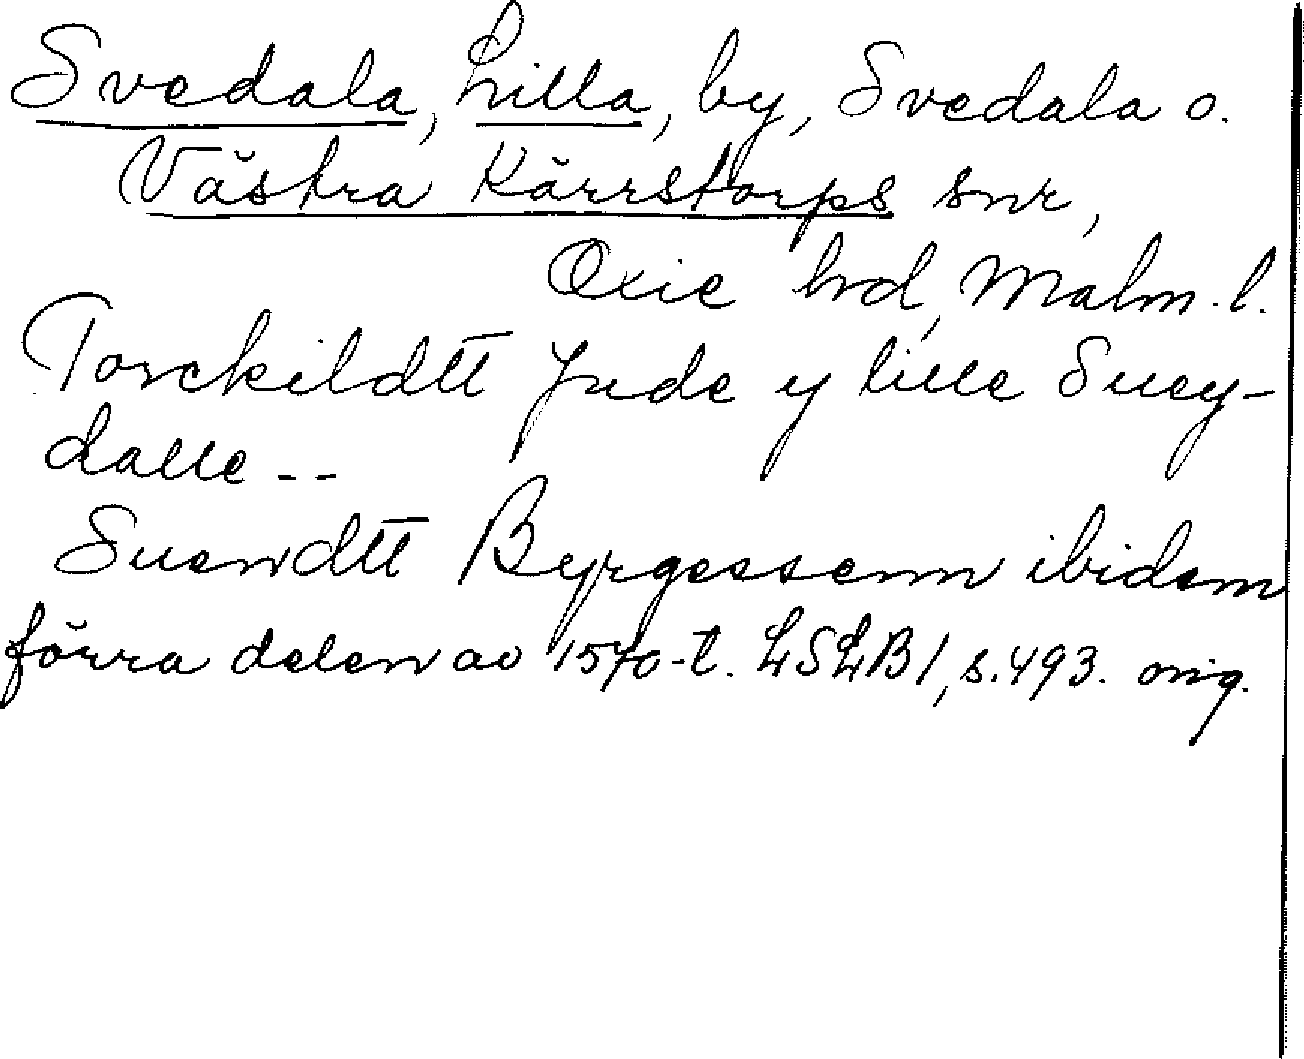 Svedala, Lilla, by, Svedala o.
Västra Kärrstorps snr,
Oxie hrd, Malm. l.
Torckildtt Jude y lille Suey-
dalle --
Suendtt Byrgessenn ibidem
förra delen av 1570-t. LSLB1, s. 493. orig.